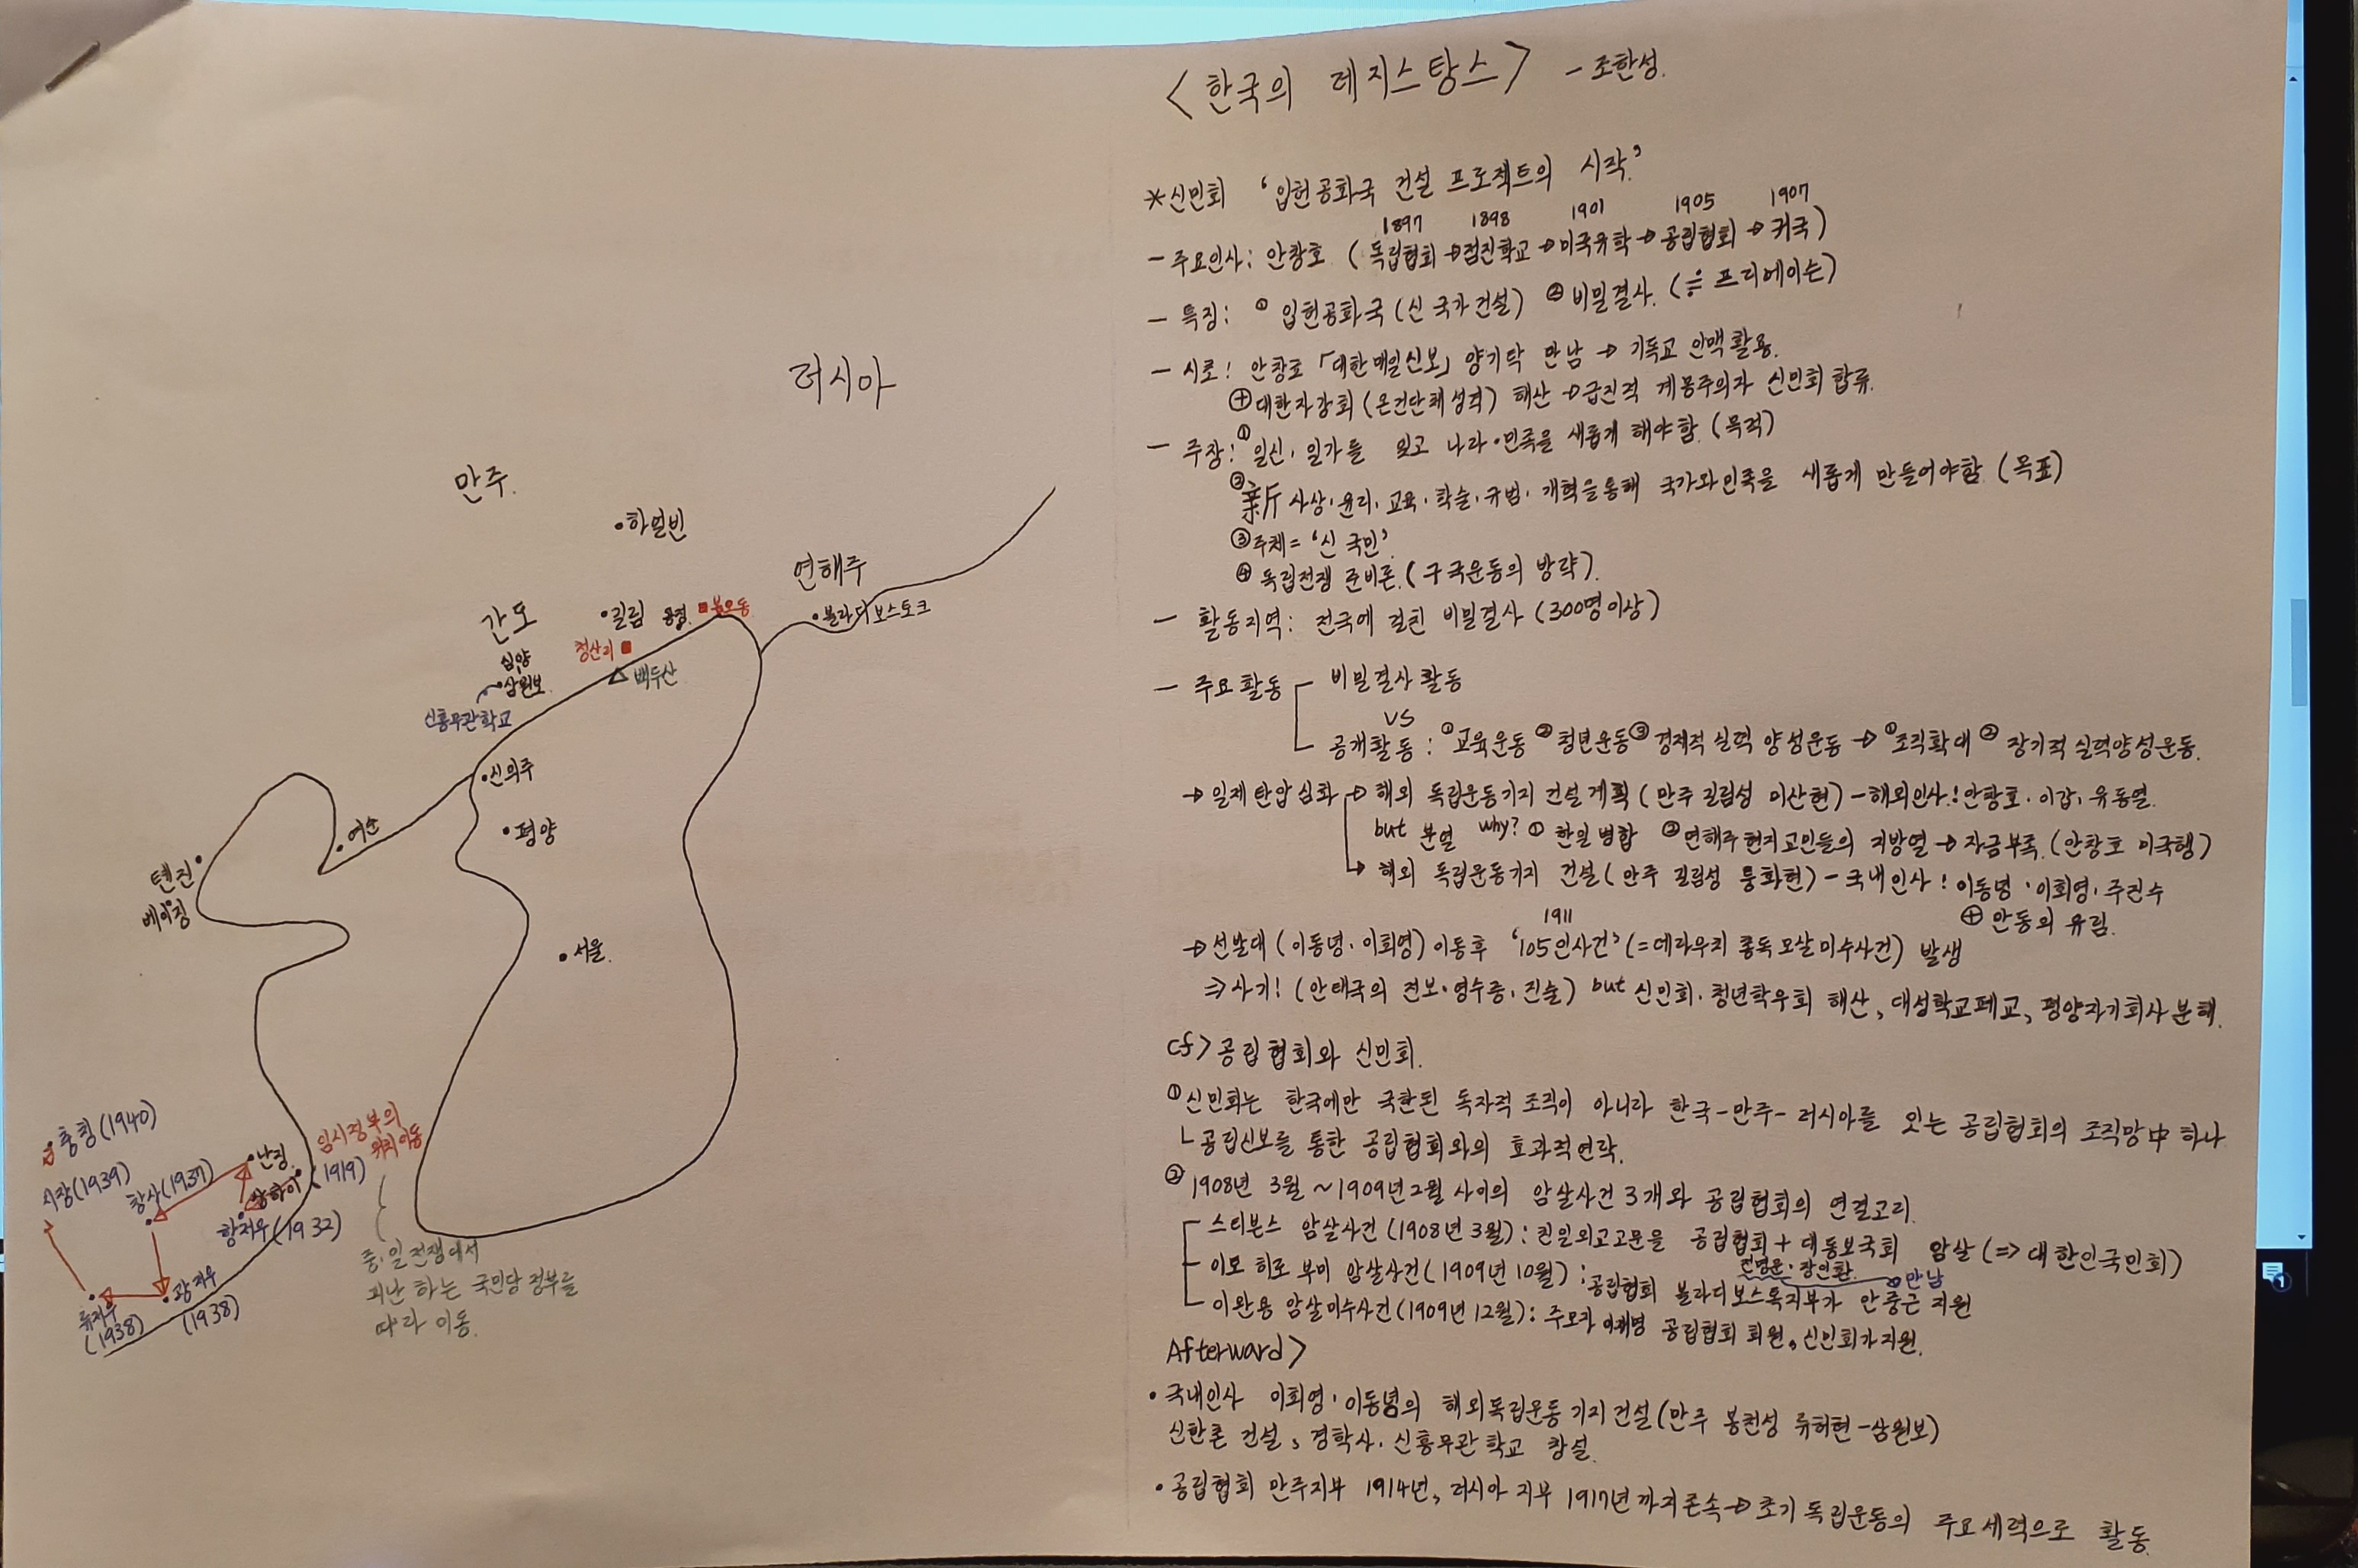 러시아
만주.
하얼빈
연해주
블라디보스토크
간도
길림
용정.
봉오동
청산리
백두산
심양
삼원보
신흥무관학교
신의주
여순
평양
텐진
베이징
서울.
충칭(1940)
(1939)
창사(1937)
난징
상하이
(1919)
임시정부의
위치이동
항저우(1932)
광저우
(1938)
류저우
(1938)
중·일전쟁에서
피난 하는 국민당 정부를
따라 이동.
<한국의 레지스탕스> - 조한성.
*신민회 '입헌공화국 건설 프로젝트의 시작.'
1897 1898 1901 1905 1907
- 주요인사: 안창호 (독립협회→점진학교→미국유학→공립협회→귀국)
- 특징: ① 입헌공화국(신 국가건설) ② 비밀결사. (≒ 프리메이슨)
- 시로! 안창호 「대한매일신보」 양기탁 만남 → 기독교 인맥활용.
⊕대한자강회(온건단체성격) 해산→급진적 계몽주의자 신민회 합류.
- 주장: ①일신·일가를 잊고 나라·민족을 새롭게 해야함. (목적)
②新 사상·윤리·교육·학술·규범·개혁을통해 국가와민족을 새롭게 만들어야함 (목표)
③주체= '신 국민'.
④ 독립전쟁 준비론.(구국운동의 방략).
- 활동지역: 전국에 걸친 비밀결사 (300명이상)
- 주요활동 비밀결사 활동
vs
공개활동 : ①교육운동 ②청년운동③경제적 실력 양성운동 → ①조직확대 ② 장기적 실력양성운동.
→일제탄압심화→ 해외 독립운동기지 건설계획(만주 길림성 미산현) - 해외인사!안창호·이갑·유동열.
but 분열 why? ① 한일병합 ②연해주현지교민들의 지방열→자금부족.(안창호 미국행)
→ 해외 독립운동기지 건설(만주 길림성 퉁화현) - 국내인사! 이동녕·이회영·주진수
⊕ 안동의 유림.
1911
→선발대 (이동녕·이회영) 이동후 '105인사건'(=데라우치 총독모살미수사건) 발생
⇒사기! (안태국의 전보·영수증·진술) but 신민회·청년학우회 해산, 대성학교폐교, 평양자기회사분해.
cf> 공립협회와 신민회.
①신민회는 한국에만 국한된 독자적 조직이 아니라 한국-만주-러시아를 잇는 공립협회의 조직망中 하나
└공립신보를 통한 공립협회와의 효과적연락.
②1908년 3월~1909년2월 사이의 암살사건3개와 공립협회의 연결고리.
스티븐스 암살사건(1908년 3월): 친일외교고문을 공립협회+대동보국회 암살(=> 대한인국민회)
전명운·장인환
이토 히로부미 암살사건(1909년 10월): 공립협회 블라디보스톡지부가 안중근 지원
만남
이완용 암살미수사건(1909년 12월): 주모자 이재명 공립협회 회원, 신민회가지원.
Afterward>
• 국내인사 이회영·이동녕의 해외독립운동 기지건설(만주 봉천성 류허현-삼원보)
신한촌 건설, 경학사·신흥무관학교 창설.
• 공립협회 만주지부 1914년, 러시아 지부 1917년까지존속→초기 독립운동의 주요세력으로 활동.